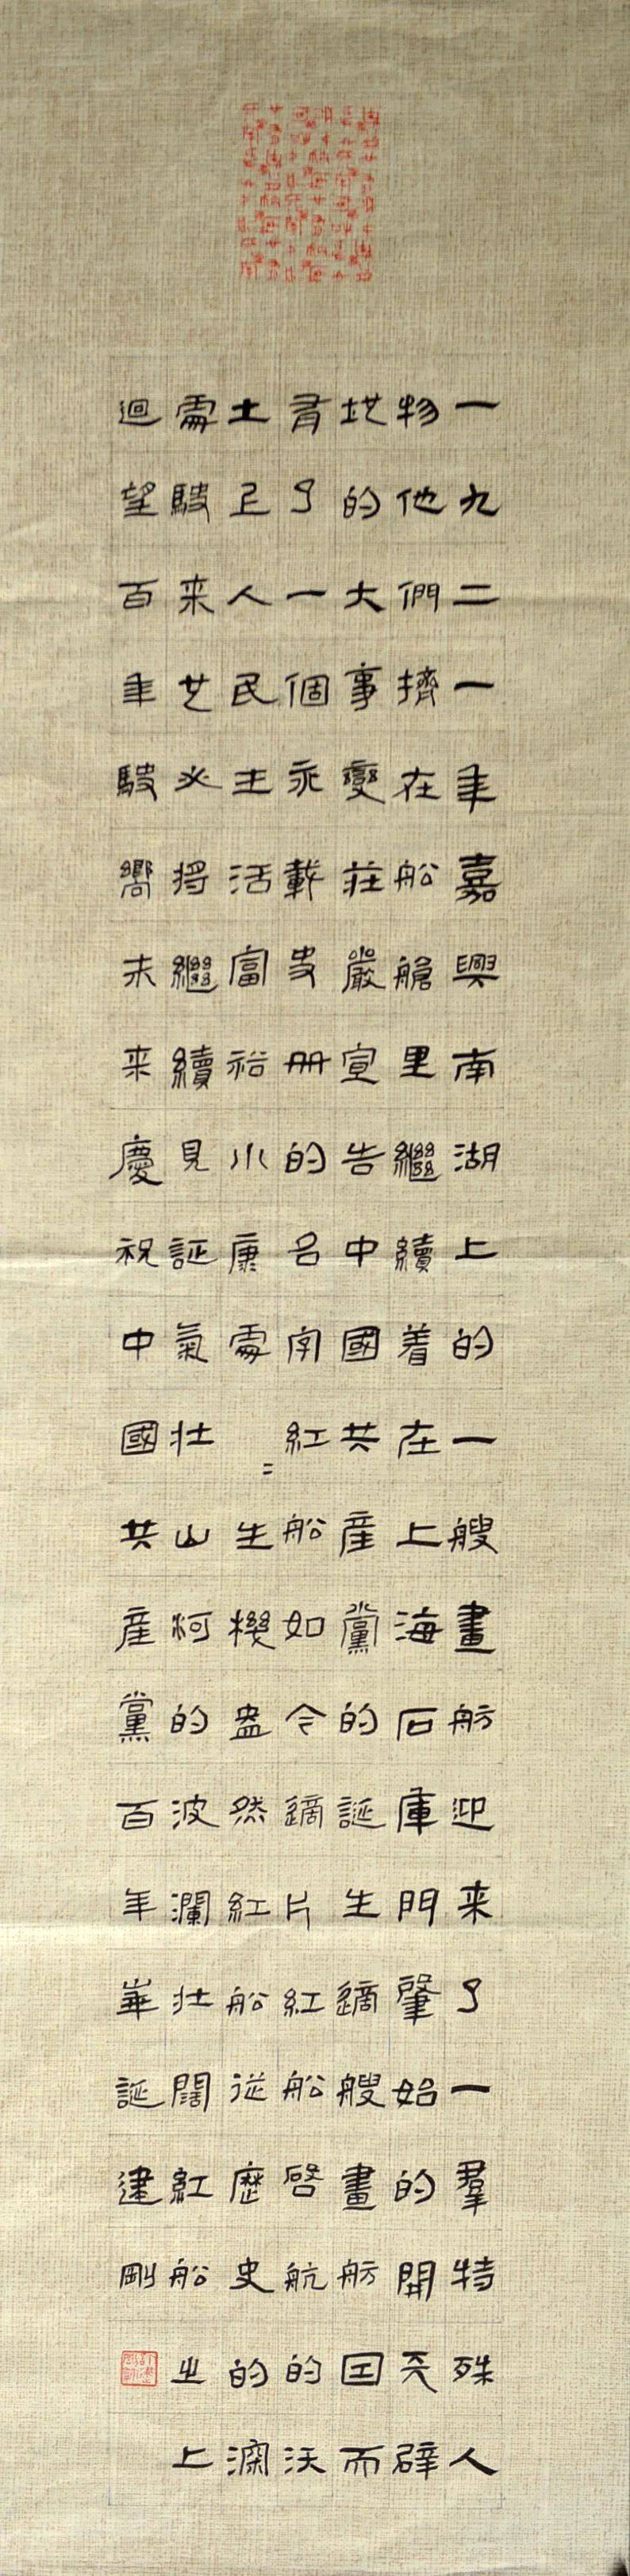 一九二一年嘉興南湖上的一艘畫舫迎来了一羣特殊人
物他們擠在船艙里繼續着在上海石庫門肇始的開天辟
地的大事變莊嚴宣告中國共産黨的誕生這艘畫舫因而
有了一個永載史册的名字紅船如今這片紅船啓航的沃
土上人民生活富裕小康處=生機盎然紅船從歷史的深
處駛来也必將繼續見証氣壯山河的波瀾壯闊紅船之上
迴望百年駛嚮未来慶祝中國共産黨百年華誕建剛